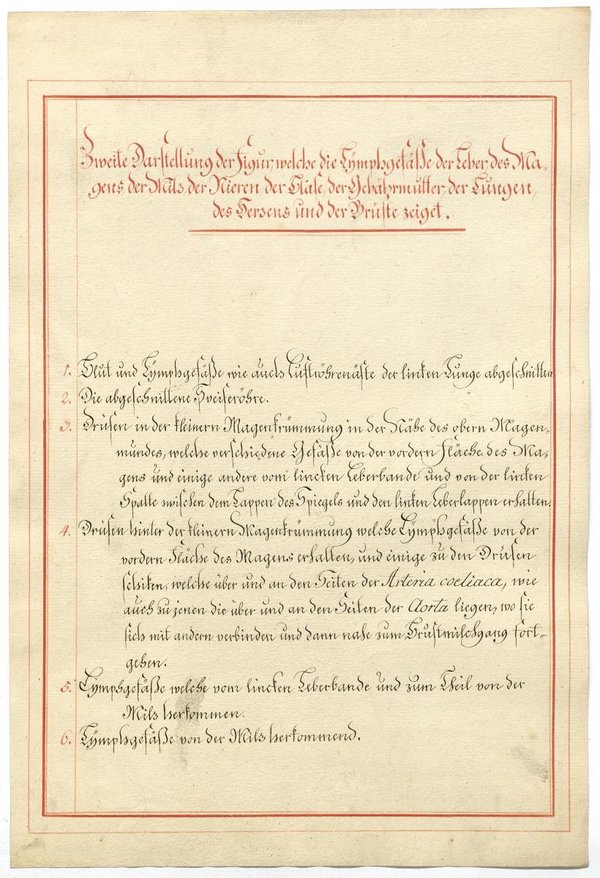 Zweite Darstellung der Figur, welche die Lÿmphgefäße der Leber, des Ma-
gens, der Mils, der Nieren, der Blase, der Gebährmutter, der Lungen,
des Hersens und der Brüste zeiget.
1. Blut und Lÿmphgefäße wie auch Luftröhrenäste der lincken Lunge abgeschnitten.
2. Die abgeschnittene Speiseröhre.
3. Drüsen in der kleinern Magenkrümmung in der Nähe des obern Magen-
mundes, welche verschiedene Gefäße von der vordern Fläche des Ma-
gens und einige andere vom lincken Leberbande und von der lincken
Spalte zwischen dem Lappen des Spiegels und den linken Leberlappen erhalten.
4. Drüsen hinter der kleinern Magenkrümmung welche Lÿmphgefäße von der
vordern Fläche des Magens erhalten, und einige zu den Drüsen
schiken, welche über und an den Seiten der Arteria coeliaca, wie
auch zu jenen die über und an den Seiten der Aorta liegen, wo sie
sich mit andern verbinden und dann nahe zum Brustmilchgang fort-
gehen.
5. Lÿmphgefäße welche vom lincken Leberbande und zum Theil von der
Mils herkommen.
6. Lÿmphgefäße von der Mils herkommend.